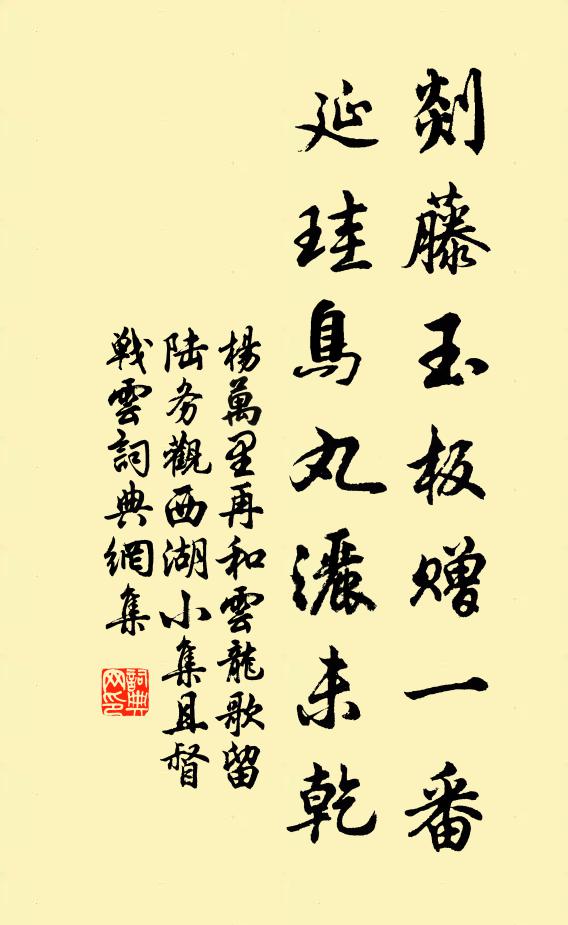 剡藤玉板贈一番
延珪鳥丸灑未乾
楊萬里再和雲龍歌留
陸务觀西湖小集且督
戰雲詞典網集
詞典
网印